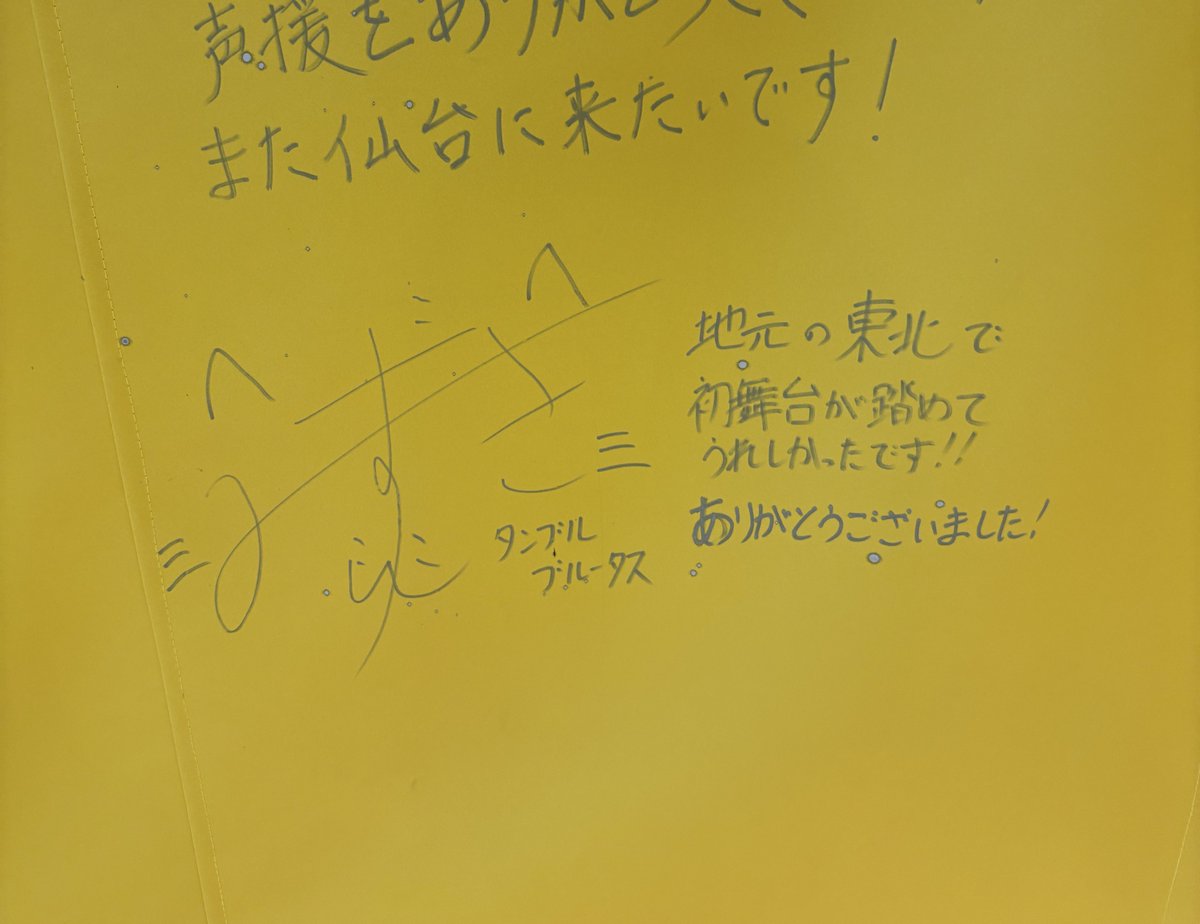 声援をありがとう
また仙台に来たいです！
みずき
タンブル
ブルータス
地元の東北で
初舞台が踏めて
うれしかったです!!
ありがとうございました！